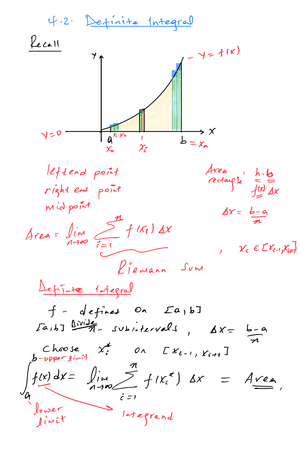 4.2. Definite Integral
Recall
y
y = f(x)
y=0
a x₁ x₂ xᵢ b = xₙ x
x₀
left end point
right end point
mid point
Area rectangle = h.b
f(xᵢ) Δx
Δx = b-a/n
Area = lim n→∞ Σ i=1 n f(xᵢ) Δx , xᵢ ∈ [xᵢ₋₁, xᵢ₊₁]
Riemann Sum
Definite Integral
f - defined on [a,b]
[a,b] Divide n - subintervals , Δx = b-a/n
Choose xᵢ* on [xᵢ₋₁, xᵢ₊₁]
b-upper limit
∫ₐ f(x) dx = lim n→∞ Σ i=1 n f(xᵢ*) Δx = Area
lower limit
Integrand